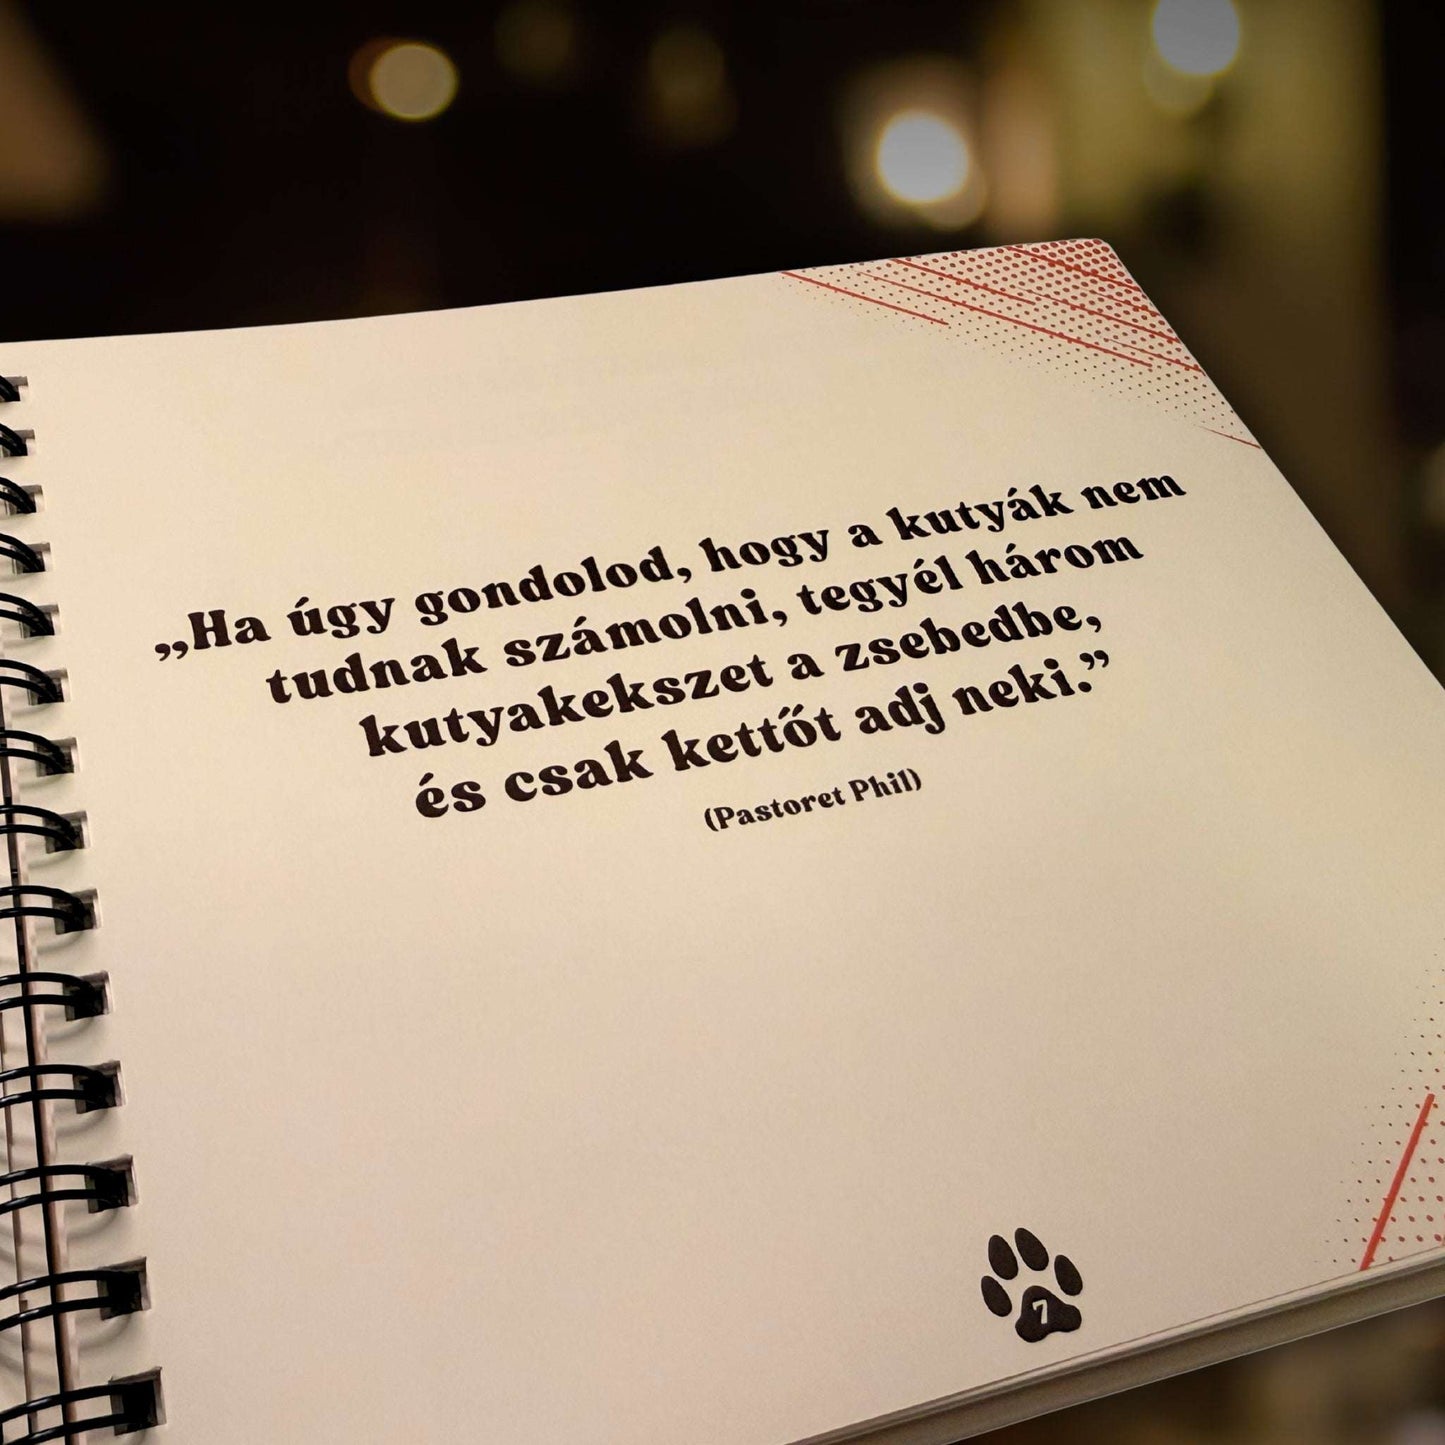 „Ha úgy gondolod, hogy a kutyák nem
tudnak számolni, tegyél három
kutyakekszet a zsebedbe,
és csak kettőt adj neki.”
(Pastoret Phil)
7